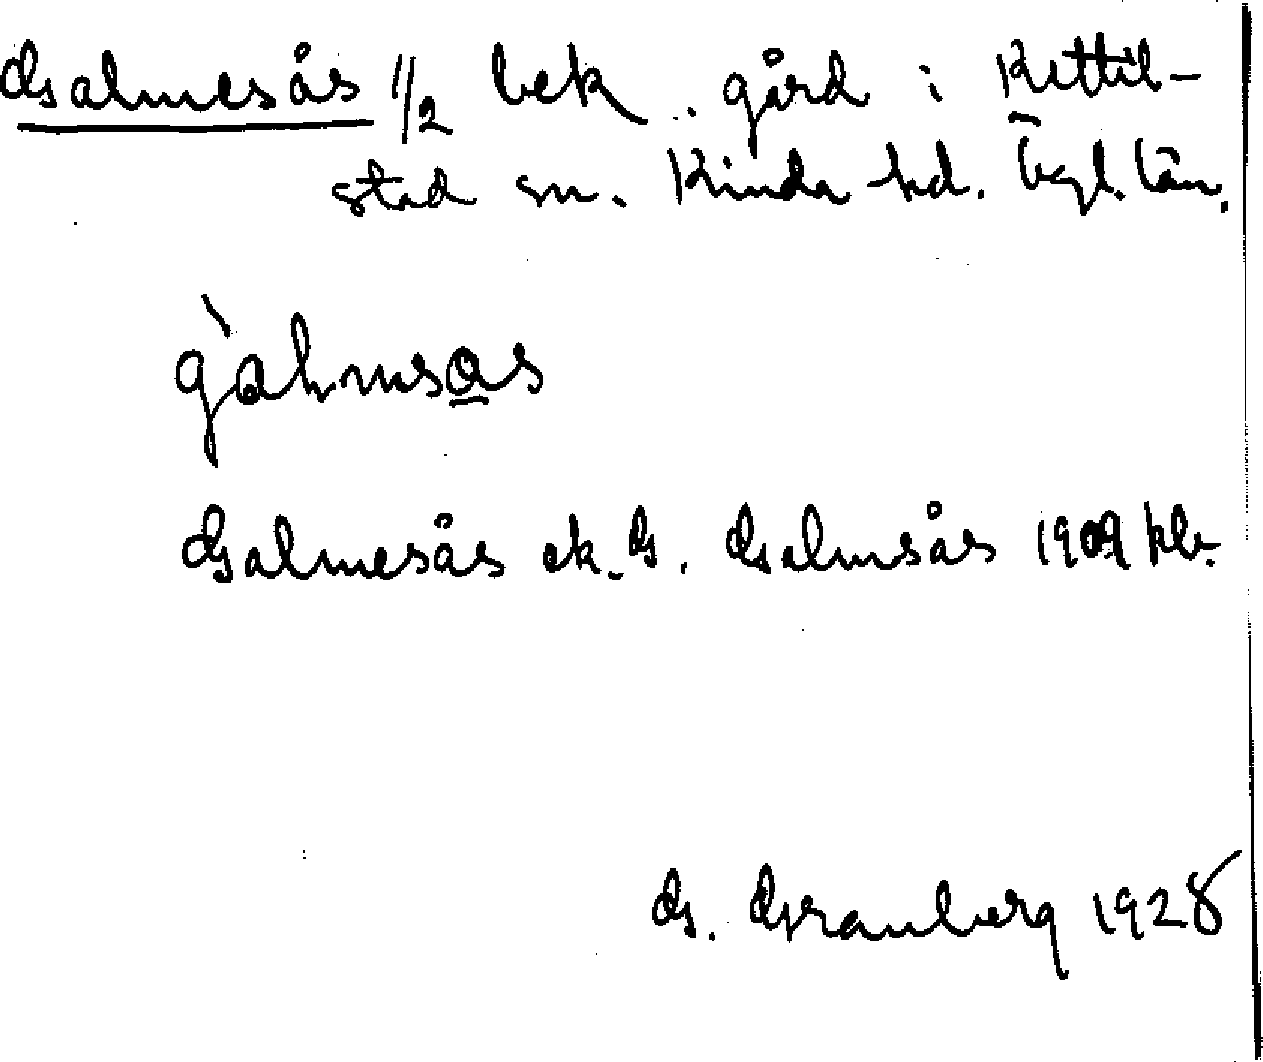 Galmesås 1/2 bek. gård i Kettil-
stad sn. Kinda hd. Ögl. län.
gàlmsås
Galmesås ek. G. Galmsås 1909 kbr.
G. Granberg 1928